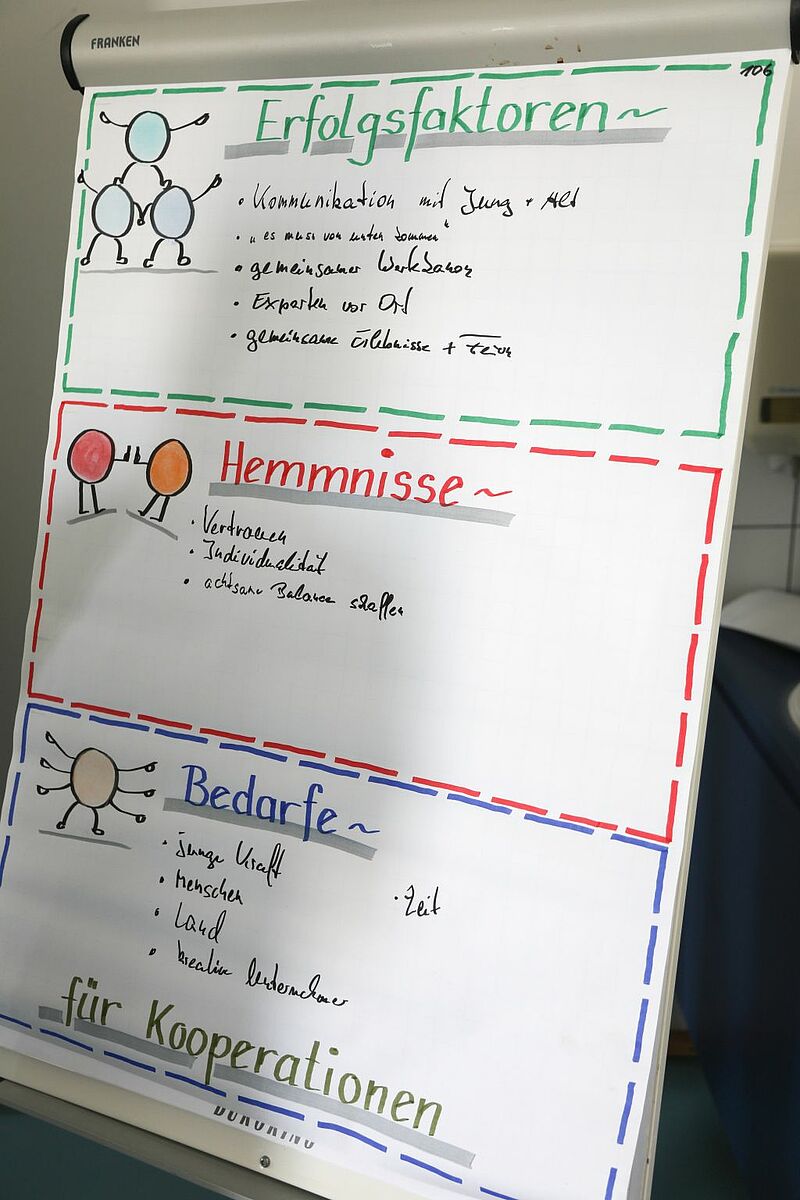 FRANKEN
106
Erfolgsfaktoren ~
• Kommunikation mit Jung + Alt
• „es muss von unten kommen“
• gemeinsamer
• Experten vor Ort
• gemeinsame Erlebnisse + Feiern
Hemmnisse ~
• Vertrauen
• Individualität
• achtsame Balance schaffen
Bedarfe ~
• junge Kraft
• Menschen
• Zeit
• Land
• kreative Unternehmer
für Kooperationen